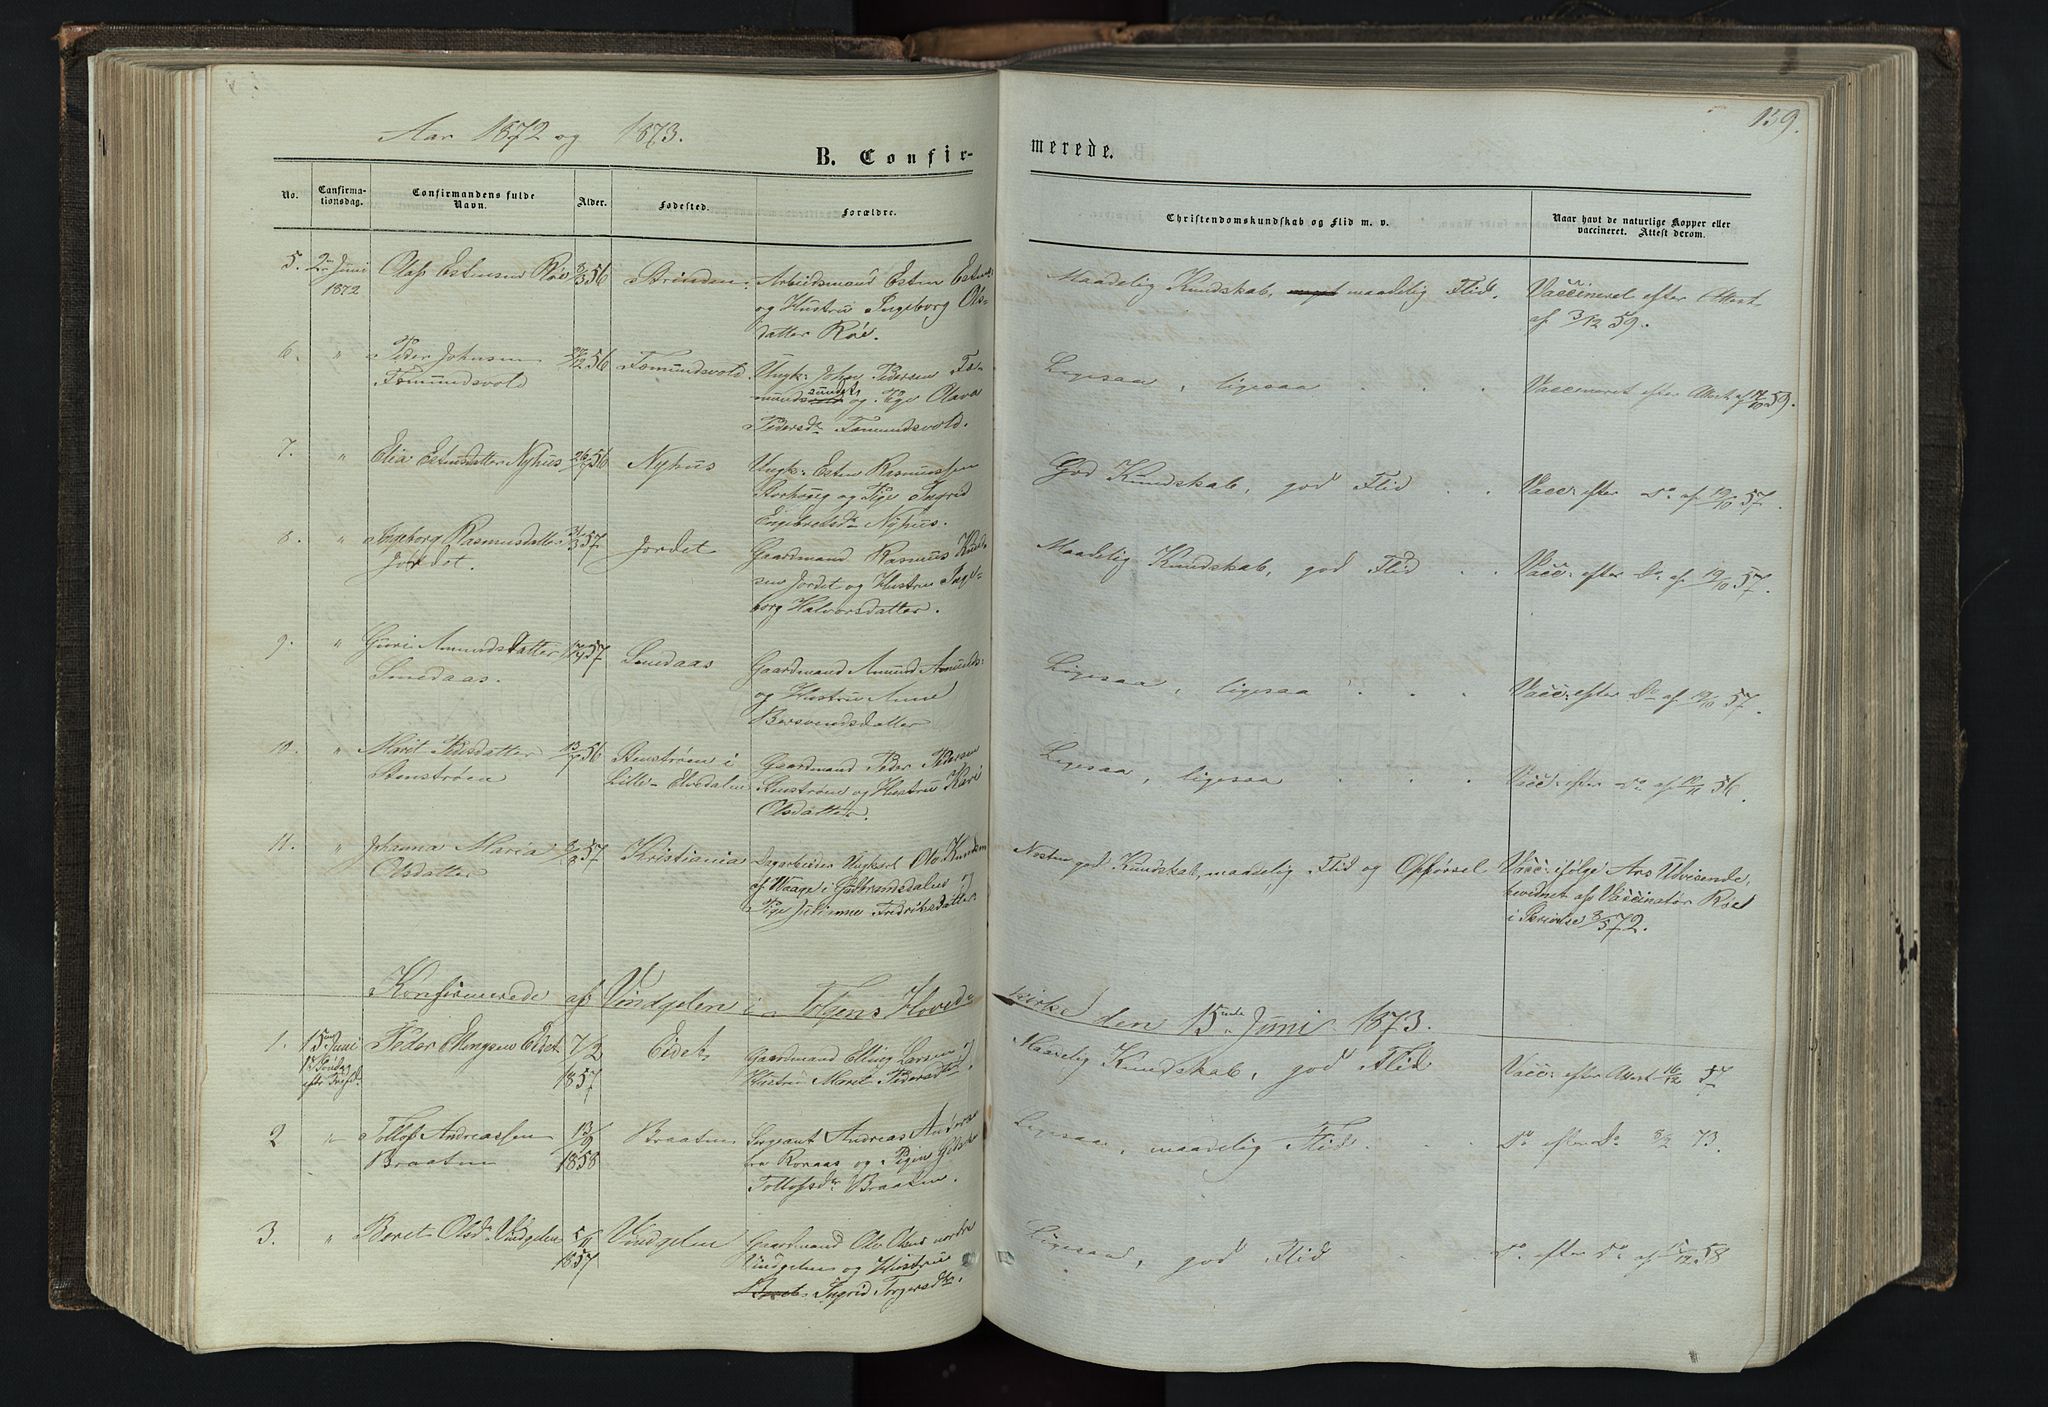 139.
Aar 1872 og 1873.
B. Confir-
merede.
No.
Confirma-
tionsdag.
Confirmandens fulde
Navn.
Alder.
Fødested.
Forældre.
Christendomskundskab og Flid m. v.
Naar havt de naturlige Kopper eller
vaccineret. Attest derom.
5. 2den Juni 1872 Olaf Estensen Røe 56 Arbeidsmand Esten
og Hustru Ingeborg Ols-
datter Røe.
Maadelig Kundskab, maadelig Flid.
Vaccineret efter Attest
af 3/12 59.
6. " Peder Johnsen
Tomundsvold
56 Tomundsvold
Ungk: John Pedersen To-
mundsundet og Pige Olava
Pedersdr Tomundsvold.
Ligesaa, ligesaa
Vaccineret efter Attest af 59.
7. " Elia Estensdatter Nyhus 56 Nyhus
Ungk: Esten Rasmussen
og Pige Ingrid
Engebretsdr Nyhus.
God Kundskab, god Flid
Vacc: efter Do af 19/10 57.
8. " Ingeborg Rasmusdatter
Jordet.
31/3 57 Jordet
Gaardmand Rasmus Knud-
sen Jordet og Hustru Inge-
borg Halvorsdatter.
Maadelig Kundskab, god Flid
Vacc: efter Do af 19/10 57.
9. " Guri Amundsdatter
Smedaas.
57 Smedaas
Gaardmand Amund Amunds:
og Hustru Ane
Bersvendsdatter
Ligesaa, ligesaa
Vacc: efter Do af 19/10 57.
10. " Marit Pedersdatter
Stenstrøen
13/7 56 Stenstrøen i
Lille-Elvedalen
Gaardmand Peder Pedersen
Stenstrøen og Hustru Kari
Olsdatter.
Ligesaa, ligesaa
Vacc: efter Do af 56.
11. " Johanna Maria
Olsdatter
57 Kristiania
Dagarbeider Ungkarl Ole Knudsen
af Waage i Gulbrandsdalen og
Pige Julianne Fredriksdatter
Næsten god Kundskab, maadelig Flid og Opførsel
Vacc: ifølge Ars Udvisende,
bevidnet af Vaccinatør Røe
i Skrivelse 3/5 72.
Konfirmerede af Vindgelen i Tolgens Hoved-
kirke den 15nde Juni 1873.
1. 15nde Juni
1ste Søndag
efter Trefdt.
Peder Ellingsen Eidet
7/2
1857
Eidet
Gaardmand Elling Larsen og
Hustru Marit Pedersdtr.
Maadelig Kundskab, god Flid
Vacc: efter Attest 16/12 57
2 " Tollof Andreassen
Braaten
13/9
1858
Braaten
Sergeant Andreas
fra Ronaas og Pigen
Tollofsdr Braaten.
Ligesaa, maadelig Flid
Do efter Do 73.
3. " Beret Olsdr Vindgelen
1857
Vindgelen
Gaardmand Ole Olsen nordre
Vindgelen og Hustru
Ingrid Torgersdtr.
Ligesaa, god Flid
Do efter Do af 58